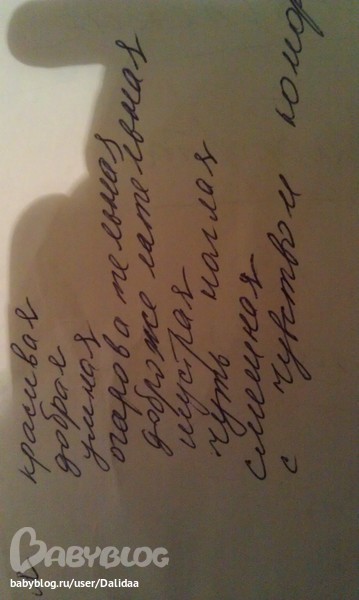 красивая
добрая
умная
очаровательная
доброжелательная
шустрая
чуть наглая
смешная
с чувством юмор
BABYBLOG
babyblog.ru/user/Dalidaa